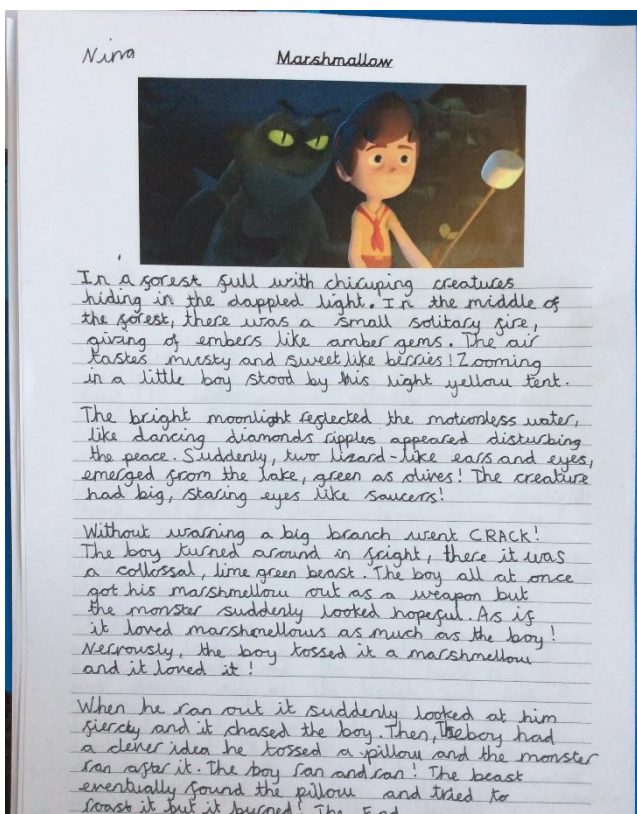 Nina
Marshmallow
In a forest full with chiruping creatures
hiding in the dappled light. In the middle of
the forest, there was a small solitary fire,
giving of embers like amber gems. The air
tastes mursty and sweet like berries! Zooming
in a little boy stood by his light yellow tent.
The bright moonlight reflected the motionless water,
like dancing diamonds ripples appeared disturbing
the peace. Suddenly, two lizard-like ears and eyes,
emerged from the lake, green as olives! The creature
had big, staring eyes like saucers!
Without warning a big branch went CRACK!
The boy turned around in fright, there it was
a collossal, lime green beast. The boy all at once
got his marshmellow out as a weapon but
the monster suddenly looked hopeful. As if
it loved marshmellows as much as the boy!
Nervously, the boy tossed it a marshmellow
and it loved it!
When he ran out it suddenly looked at him
fiercly and it chased the boy. Then, The boy had
a clever idea he tossed a pillow and the monster
ran after it. The boy ran and ran! The beast
eventually found the pillow and tried to
roast it but it burned! The End